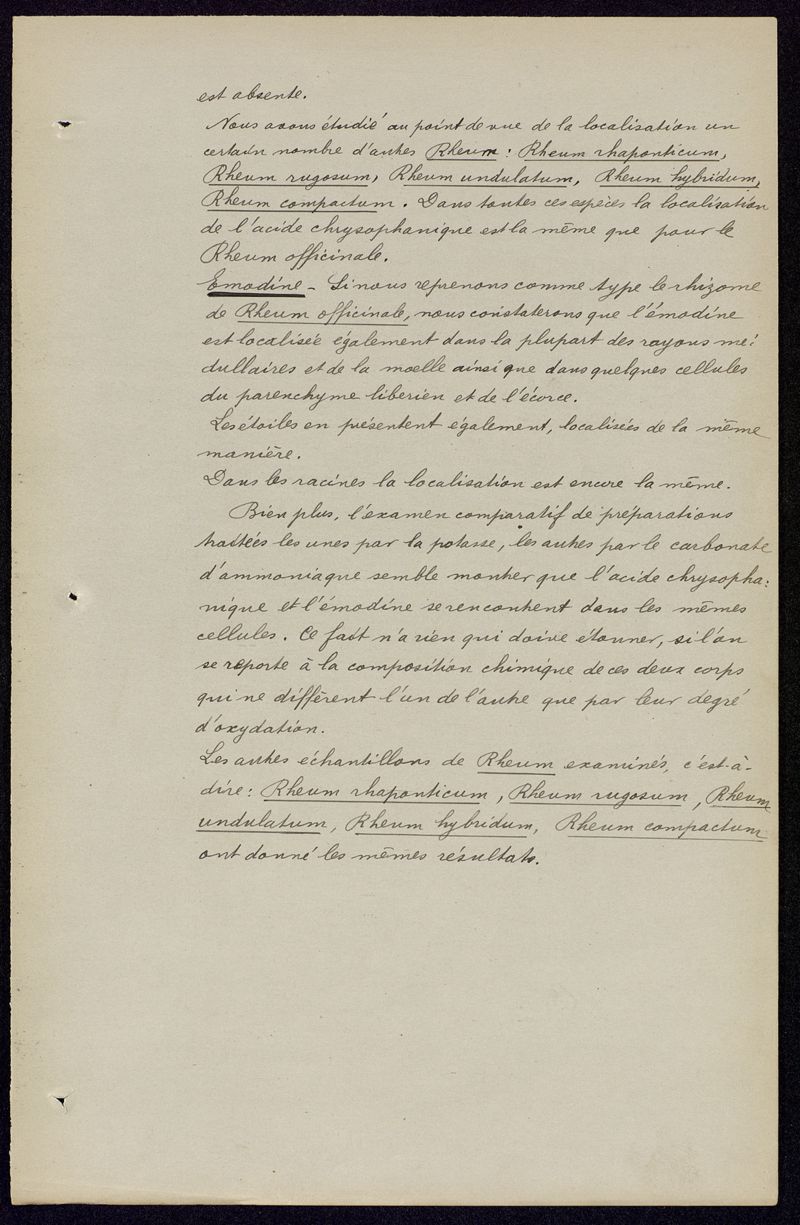 est absente.
Nous avons étudié au point de vue de la localisation un
certain nombre d'autres Rheum : Rheum rhaponticum,
Rheum rugosum, Rheum undulatum, Rheum hybridum,
Rheum compactum. Dans toutes ces espèces la localisation
de l'acide chrysophanique est la même que pour le
Rheum officinale.
Emodine - Si nous reprenons comme type le rhizome
de Rheum officinale, nous constaterons que l'émodine
est localisée également dans la plupart des rayons mé:
dullaires et de la moelle ainsi que dans quelques cellules
du parenchyme libérien et de l'écorce.
Les étoiles en présentent également, localisées de la même
manière.
Dans les racines la localisation est encore la même.
Bien plus, l'examen comparatif de préparations
traitées les unes par la potasse, les autres par le carbonate
d'ammoniaque semble montrer que l'acide chrysopha:
nique et l'émodine se rencontrent dans les mêmes
cellules. Ce fait n'a rien qui doive étonner, si l'on
se reporte à la composition chimique de ces deux corps
qui ne diffèrent l'un de l'autre que par leur degré
d'oxydation.
Les autres échantillons de Rheum examinés, c'est-à-
dire : Rheum rhaponticum, Rheum rugosum, Rheum
undulatum, Rheum hybridum, Rheum compactum
ont donné les mêmes résultats.